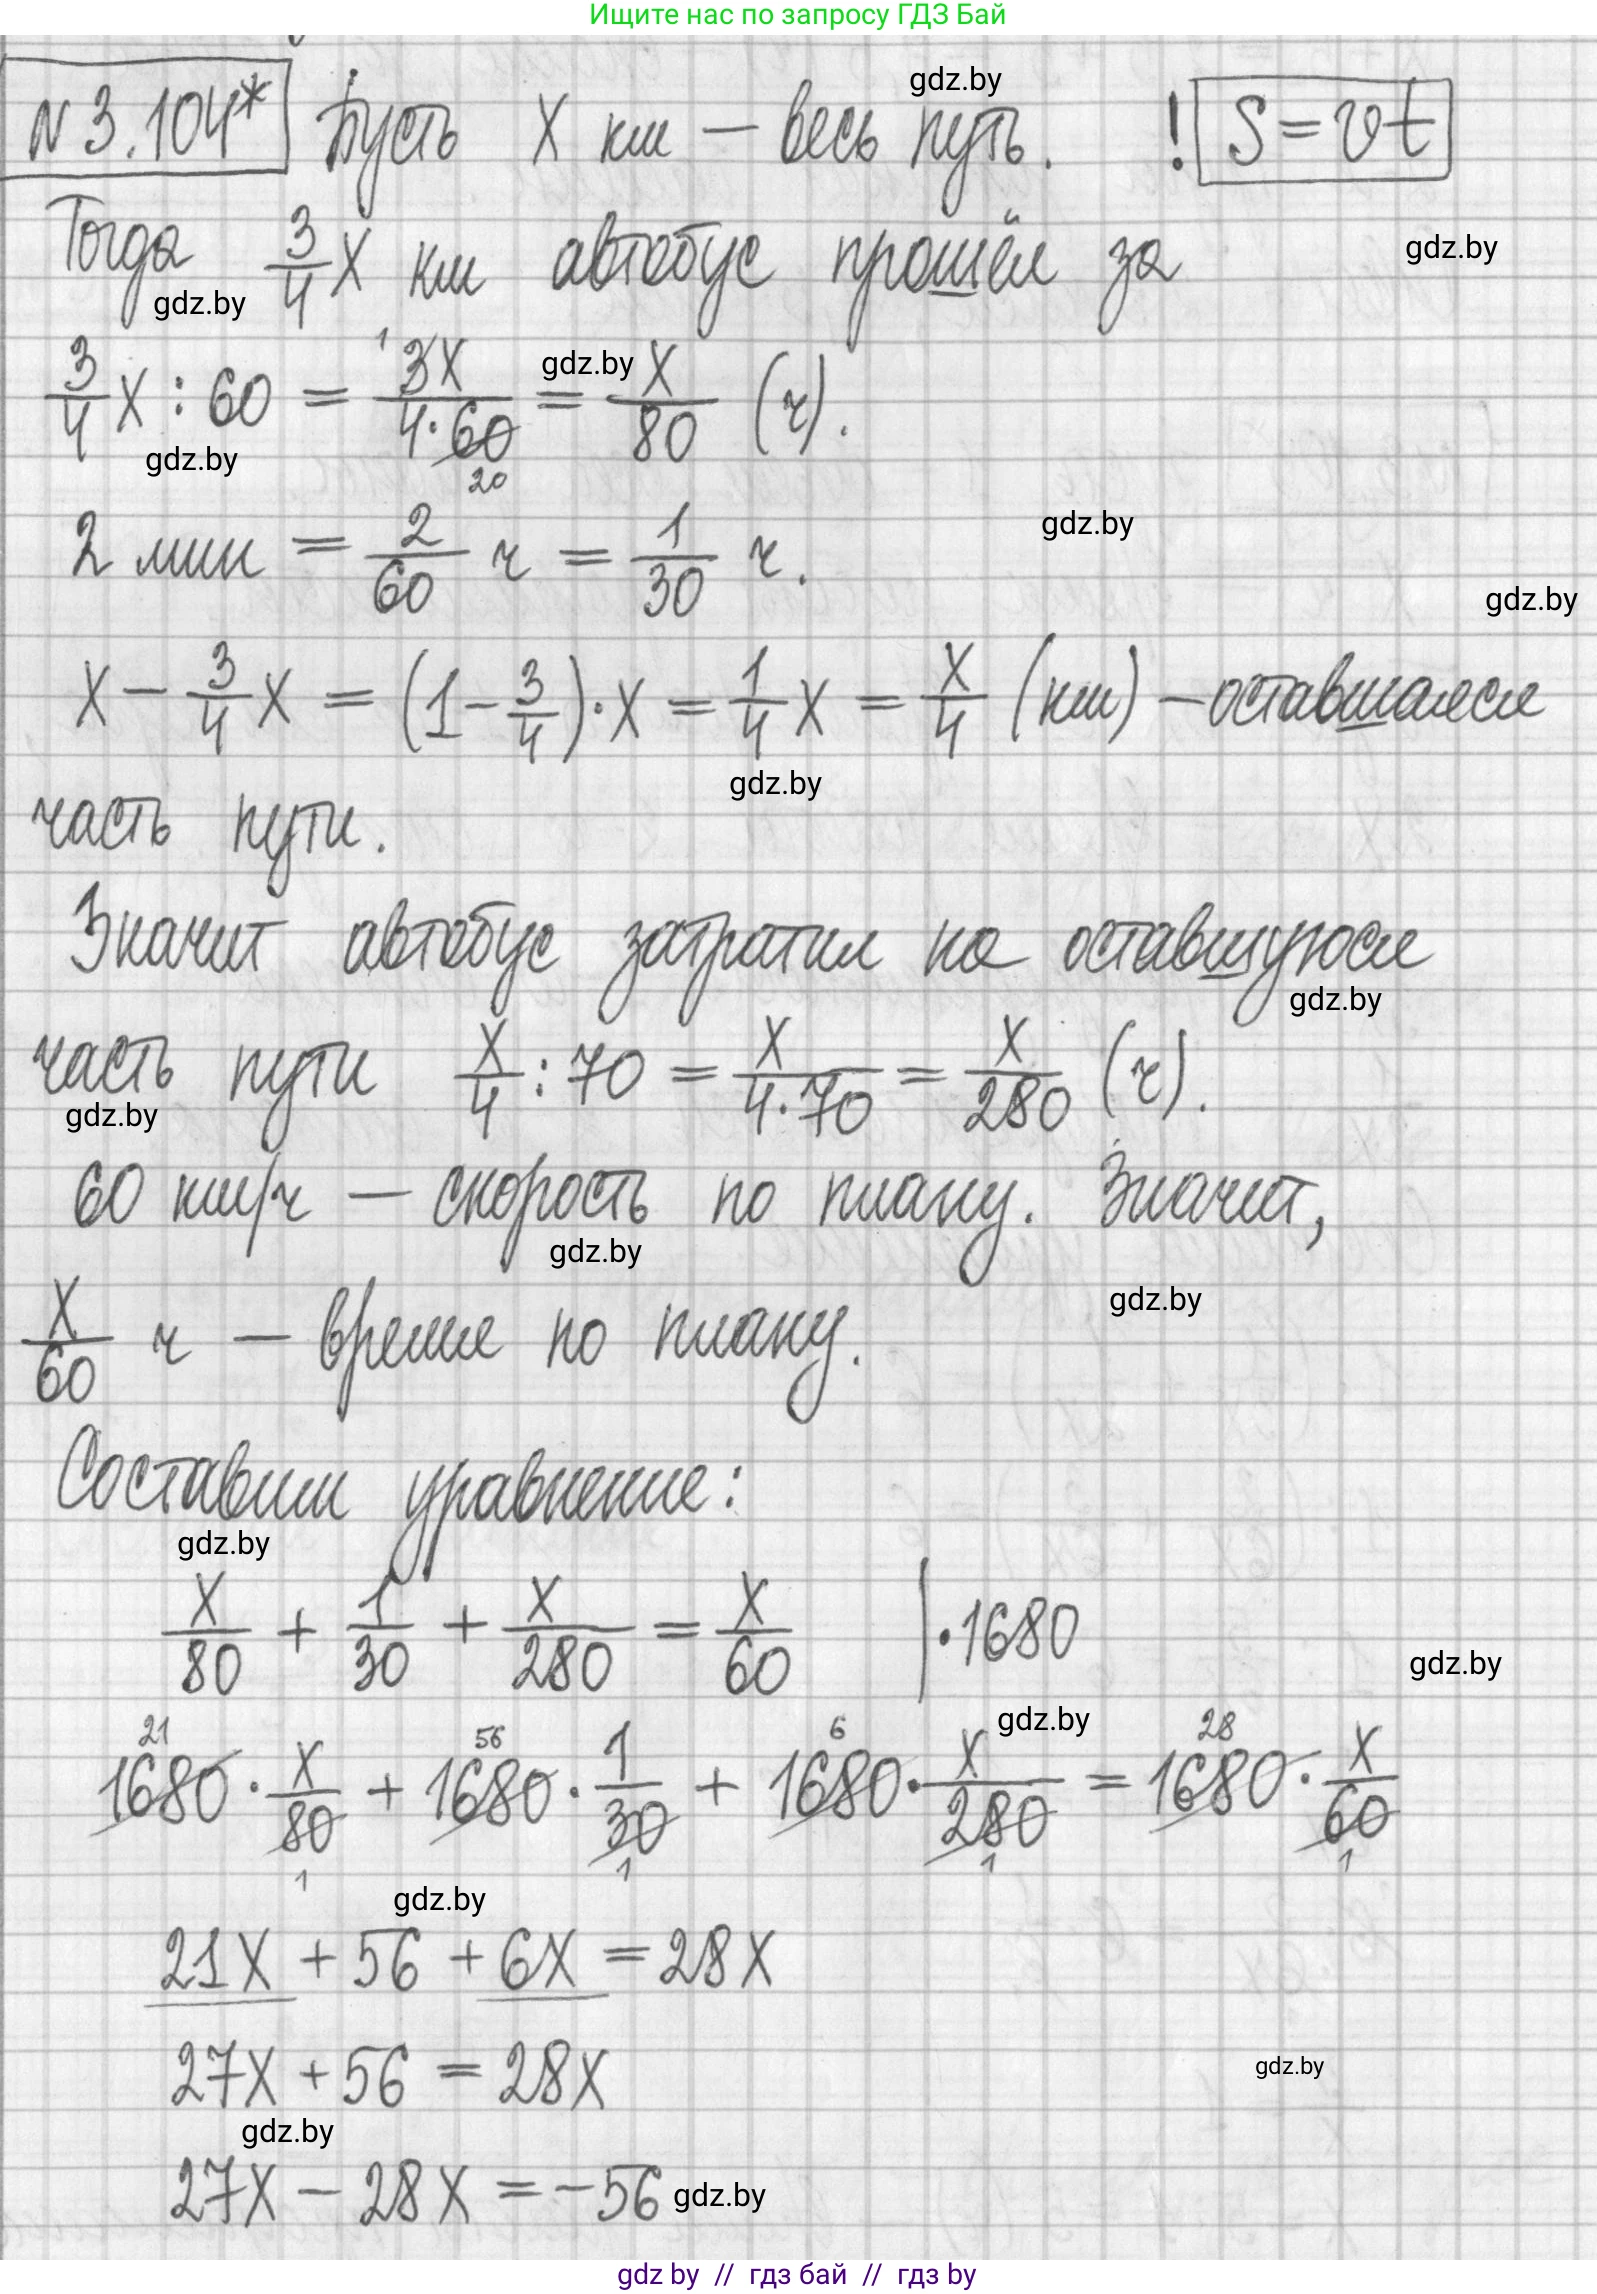 Ищите нас по запросу ГДЗ Бай
N 3.104* Пусть X км — весь путь. ! S = vt
gdz.by
Тогда 3/4 X км автобус прошёл за
gdz.by
gdz.by
3/4 X : 60 = 3X/(4·60) = X/80 (ч).
1
20
gdz.by
gdz.by
2 мин = 2/60 ч = 1/30 ч.
gdz.by
gdz.by
X − 3/4 X = (1 − 3/4) · X = 1/4 X = X/4 (км) — оставшаяся
gdz.by
часть пути.
Значит автобус затратил на оставшуюся
gdz.by
часть пути X/4 : 70 = X/(4·70) = X/280 (ч).
gdz.by
60 км/ч — скорость по плану. Значит,
gdz.by
gdz.by
X/60 ч — время по плану.
Составим уравнение:
gdz.by
X/80 + 1/30 + X/280 = X/60 | ·1680
gdz.by
gdz.by
21 56 6 28
1680 · X/80 + 1680 · 1/30 + 1680 · X/280 = 1680 · X/60
1 1 1 1
gdz.by
21X + 56 + 6X = 28X
27X + 56 = 28X
gdz.by
gdz.by
27X − 28X = −56
gdz.by
gdz by // гдз бай // гдз by